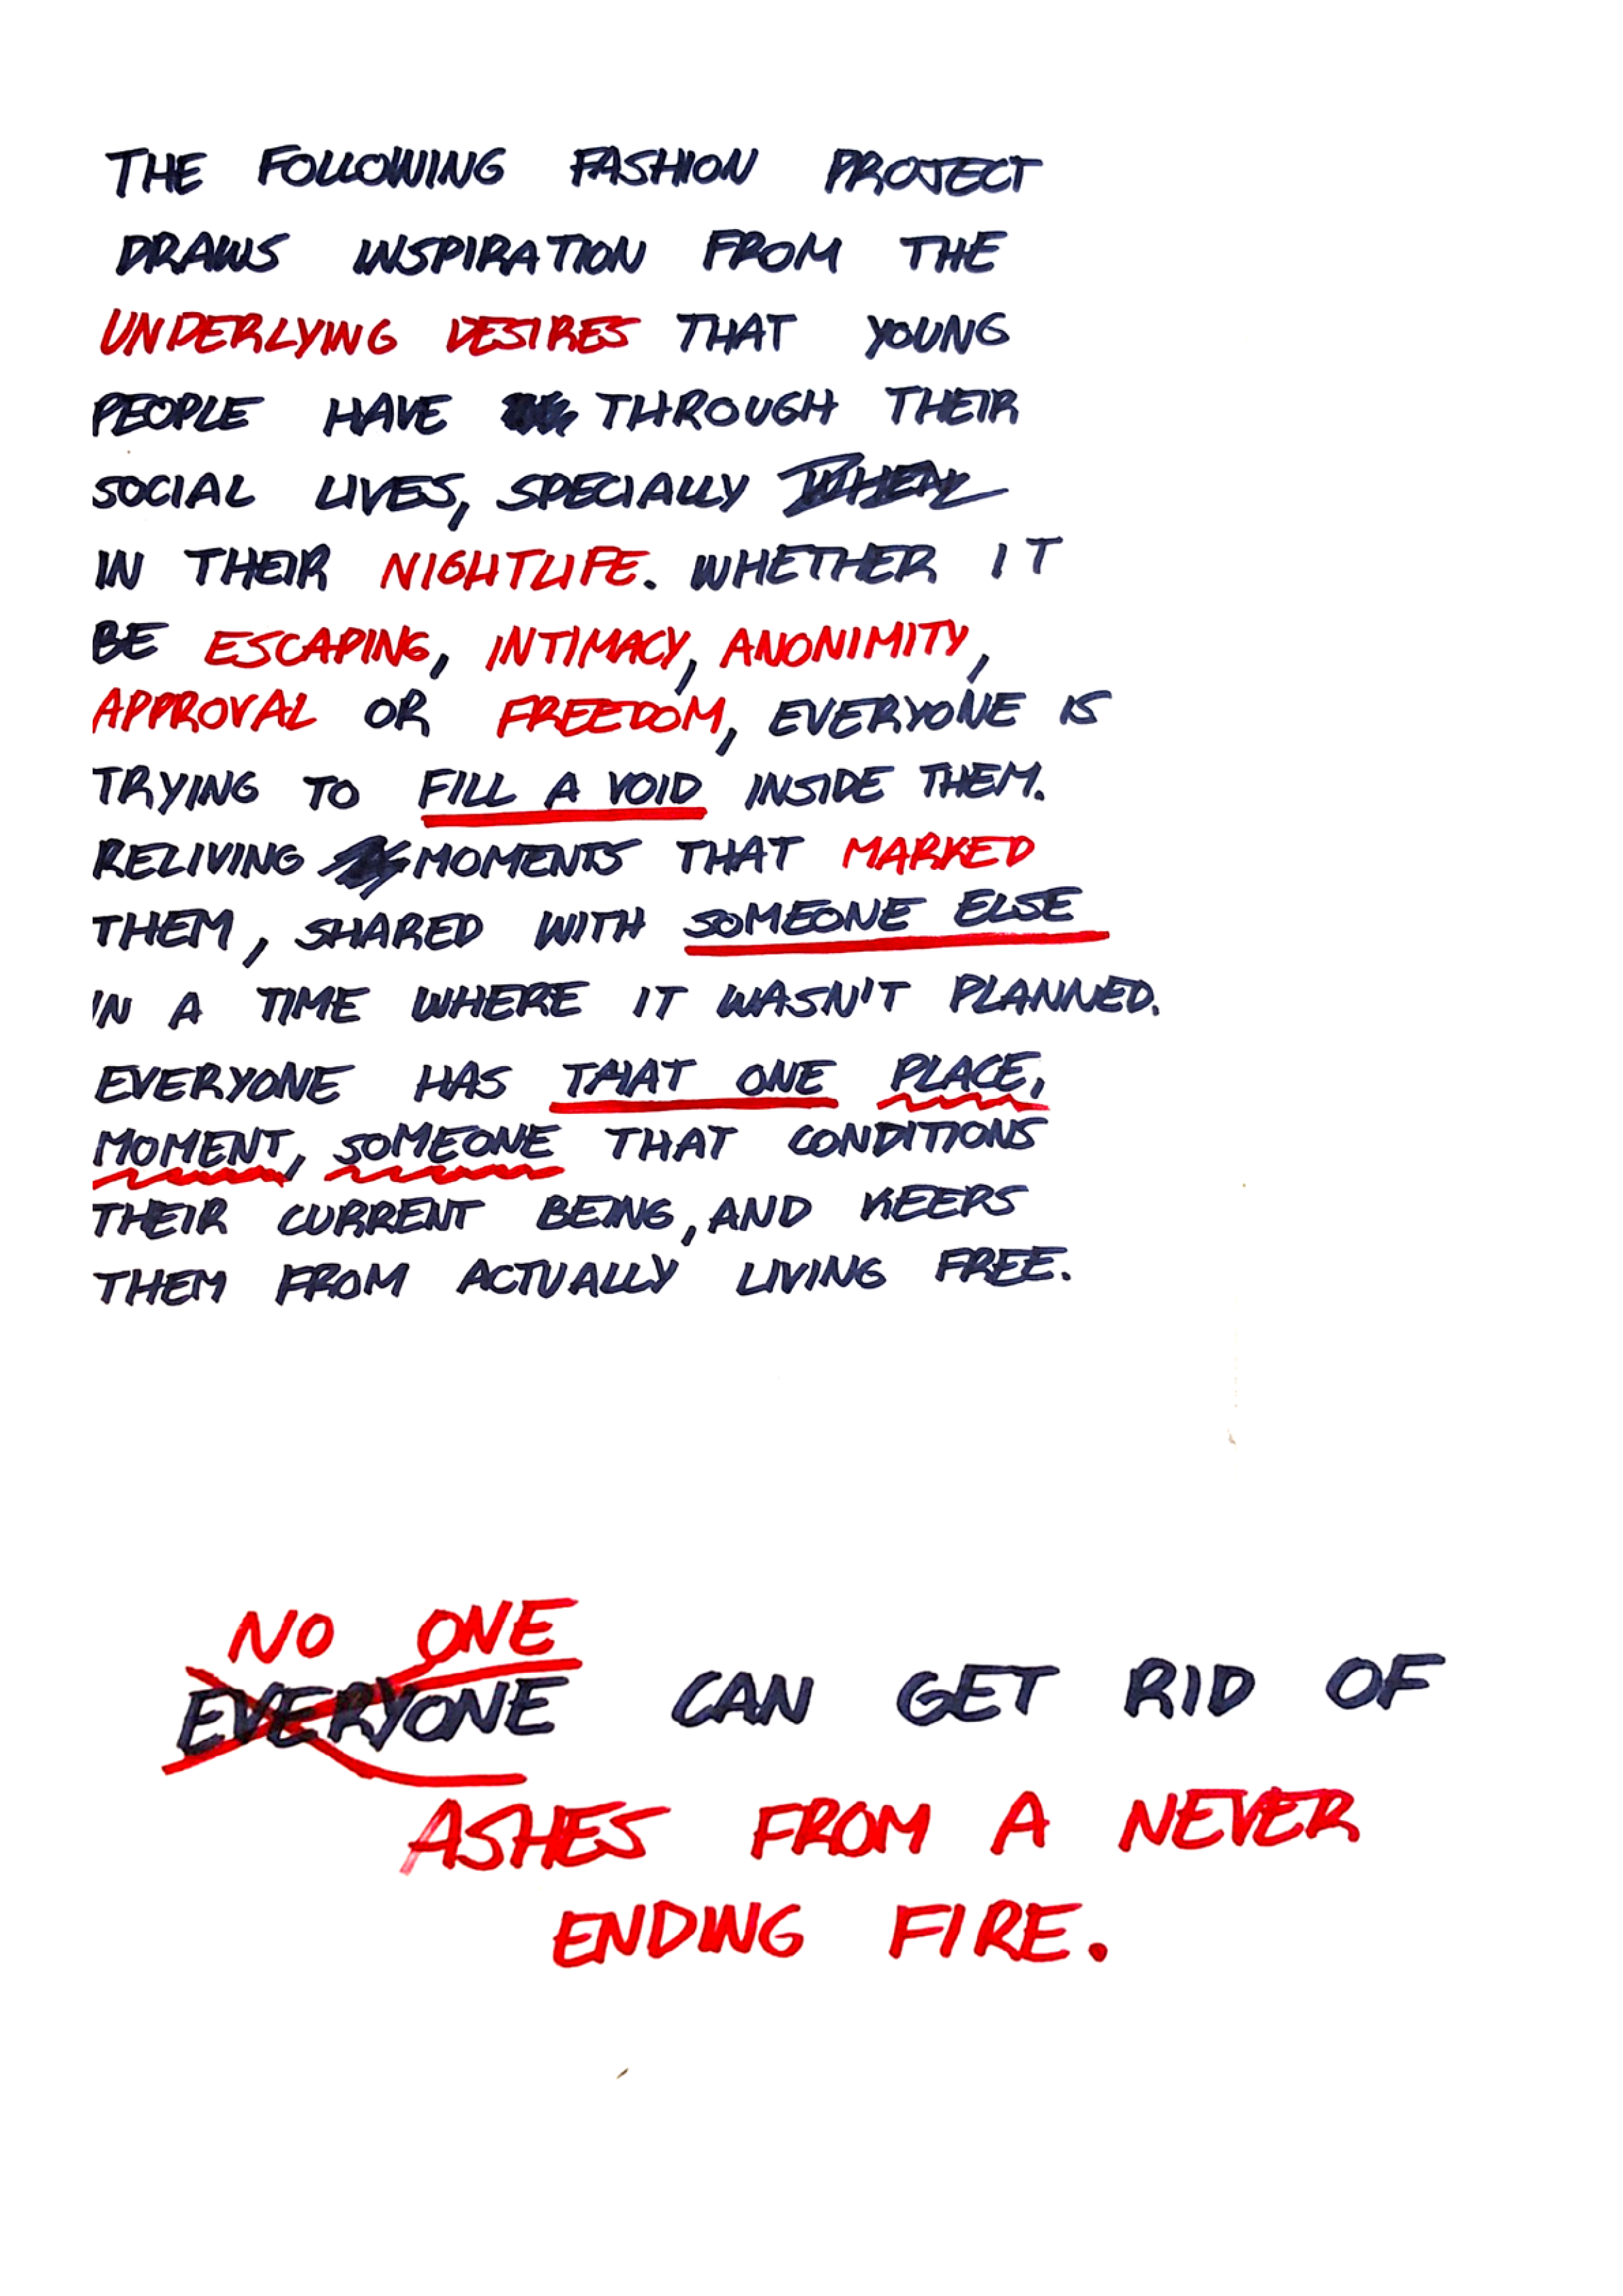 THE FOLLOWING FASHION PROJECT
DRAWS INSPIRATION FROM THE
UNDERLYING DESIRES THAT YOUNG
PEOPLE HAVE THROUGH THEIR
SOCIAL LIVES, SPECIALLY
IN THEIR NIGHTLIFE. WHETHER IT
BE ESCAPING, INTIMACY, ANONIMITY,
APPROVAL OR FREEDOM, EVERYONE IS
TRYING TO FILL A VOID INSIDE THEM.
RELIVING MOMENTS THAT MARKED
THEM, SHARED WITH SOMEONE ELSE
IN A TIME WHERE IT WASN'T PLANNED.
EVERYONE HAS THAT ONE PLACE,
MOMENT, SOMEONE THAT CONDITIONS
THEIR CURRENT BEING, AND KEEPS
THEM FROM ACTUALLY LIVING FREE.
NO ONE
EVERYONE CAN GET RID OF
ASHES FROM A NEVER
ENDING FIRE.